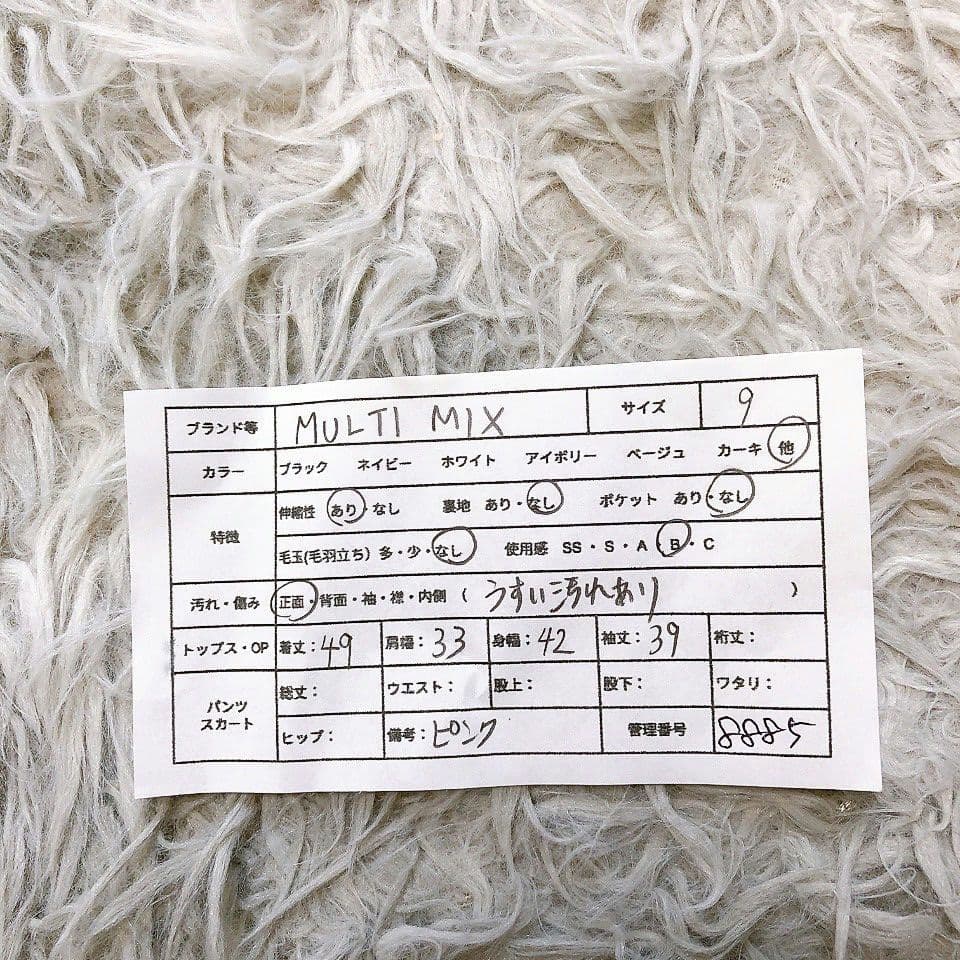 ブランド等 MULTI MIX サイズ 9
カラー ブラック ネイビー ホワイト アイボリー ベージュ カーキ 他
特徴 伸縮性 あり・なし 裏地 あり・なし ポケット あり・なし
毛玉(毛羽立ち) 多・少・なし 使用感 SS・S・A・B・C
汚れ・傷み 正面・背面・袖・襟・内側 ( うすい汚れあり )
トップス・OP 着丈：49 肩幅：33 身幅：42 袖丈：39 裄丈：
パンツ スカート 総丈： ウエスト： 股上： 股下： ワタリ：
ヒップ： 備考：ピンク 管理番号 8885